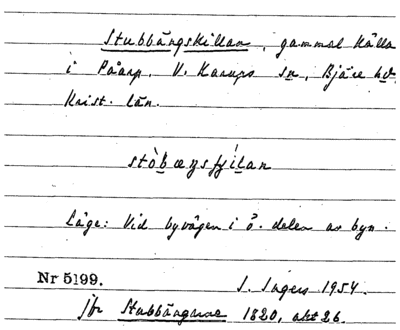 Stubbängskillan, gammal källa
i Påarp, V. Karups sn, Bjäre hd
Krist. län.
Läge: Vid byvägen i ö. delen av byn.
Nr 5199.
I. Ingers 1954.
jfr Stubbängarne 1820, akt 26.